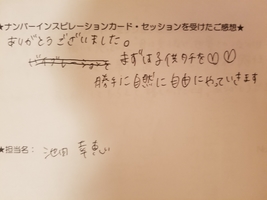 ★ナンバーインスピレーションカード・セッションを受けたご感想★
ありがとうございました。
まずは子供タチを♡♡
勝手に自然に自由にやっていきます
★担当名: 池田 幸恵